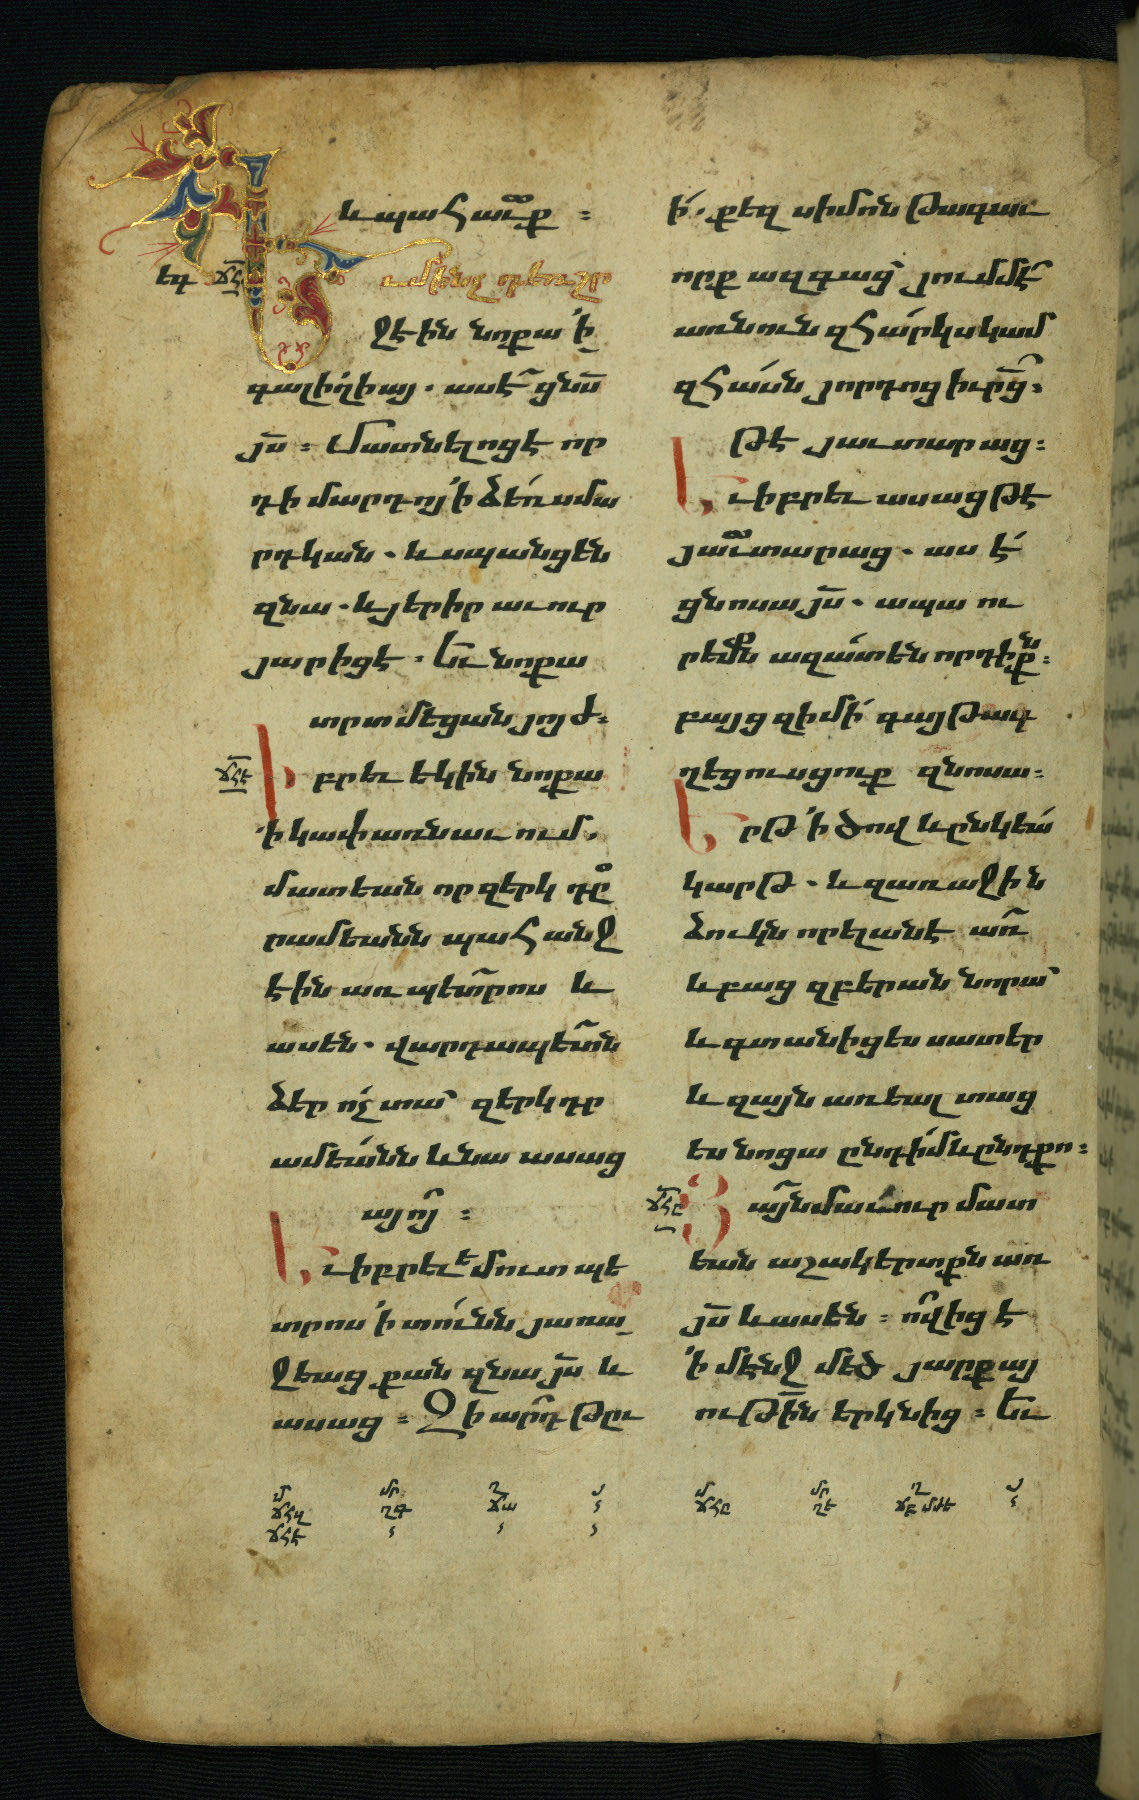 և պահաւք ։
եգ ՃՀ ւմինչ դեռ շր
ջէին նոքա ՛ի
գալիղիայ . ասէ ցնս
յս ։ Մատնելոց է որ
դի մարդոյ ՛ի ձեռս մա
րդկան . և սպանցեն
զնա . և յերիր աւուր
յարիցէ . Եւ նոքա
տրտմեցան յոյժ ։
ՃՀԷ Իբրեւ եկին նոքա
՛ի կափառնաւում .
մատեան որ զերկ դր
րամեանն պահանջ
էին առ պետրոս և
ասեն . վարդապետն
ձեր ոչ տա զերկդր
ամեանն և նա ասաց
այո ։
Եւ իբրեւ եմուտ պե
տրոս ՛ի տունն յառա
ջեաց քան զնա յս և
ասաց ։ Զի արդ թըւ
ի . քեզ սիմոն թագաւ
որք ազգաց յումմէ
առնուն զհարկս կամ
զհասն յորդոց իւրց ։
թէ յաւտարաց ։
Եւ իբրեւ ասաց թէ
յաւտարաց . աս է
ցնոսա յս . ապա ու
րեմն ազատ են որդիքն ։
բայց զի մի գայթագ
ղեցուսցուք զնոսա ։
Երթ ՛ի ծով և ընկեա
կարթ . և զառաջին
ձուկն որ ելանէ առ
և բաց զբերան նորա
և գտանիցես սատեր
և զայն առեալ տաց
ես նոցա ընդ իմ և ընդ քո ։
ՃՀԸ Յայնմ աւուր մատ
եան աշակերտքն առ
յս և ասեն ։ ո՞վ իցէ
՛ի մէնջ մեծ յարքայ
ութին երկնից ։ Եւ
մ մր ղ յ մ մր ղ յ
ՃՀԶ ՂԳ ՃԱ ՃՀԸ ՂԵ ՃԲ
ՃՀԷ